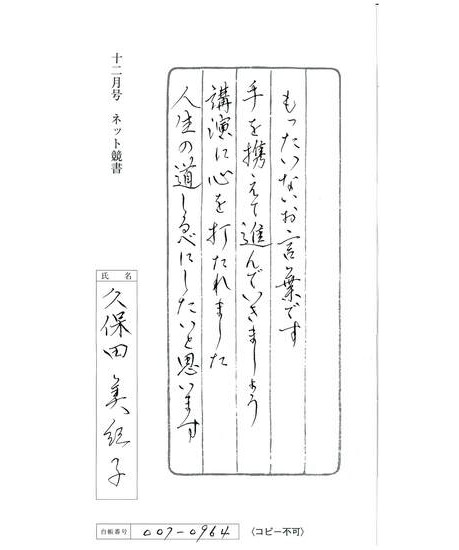 もったいないお言葉です
手を携えて進んでいきましょう
講演に心を打たれました
人生の道しるべにしたいと思います
十二月号 ネット競書
氏名
久保田美紀子
台帳番号 007-0964 (コピー不可)